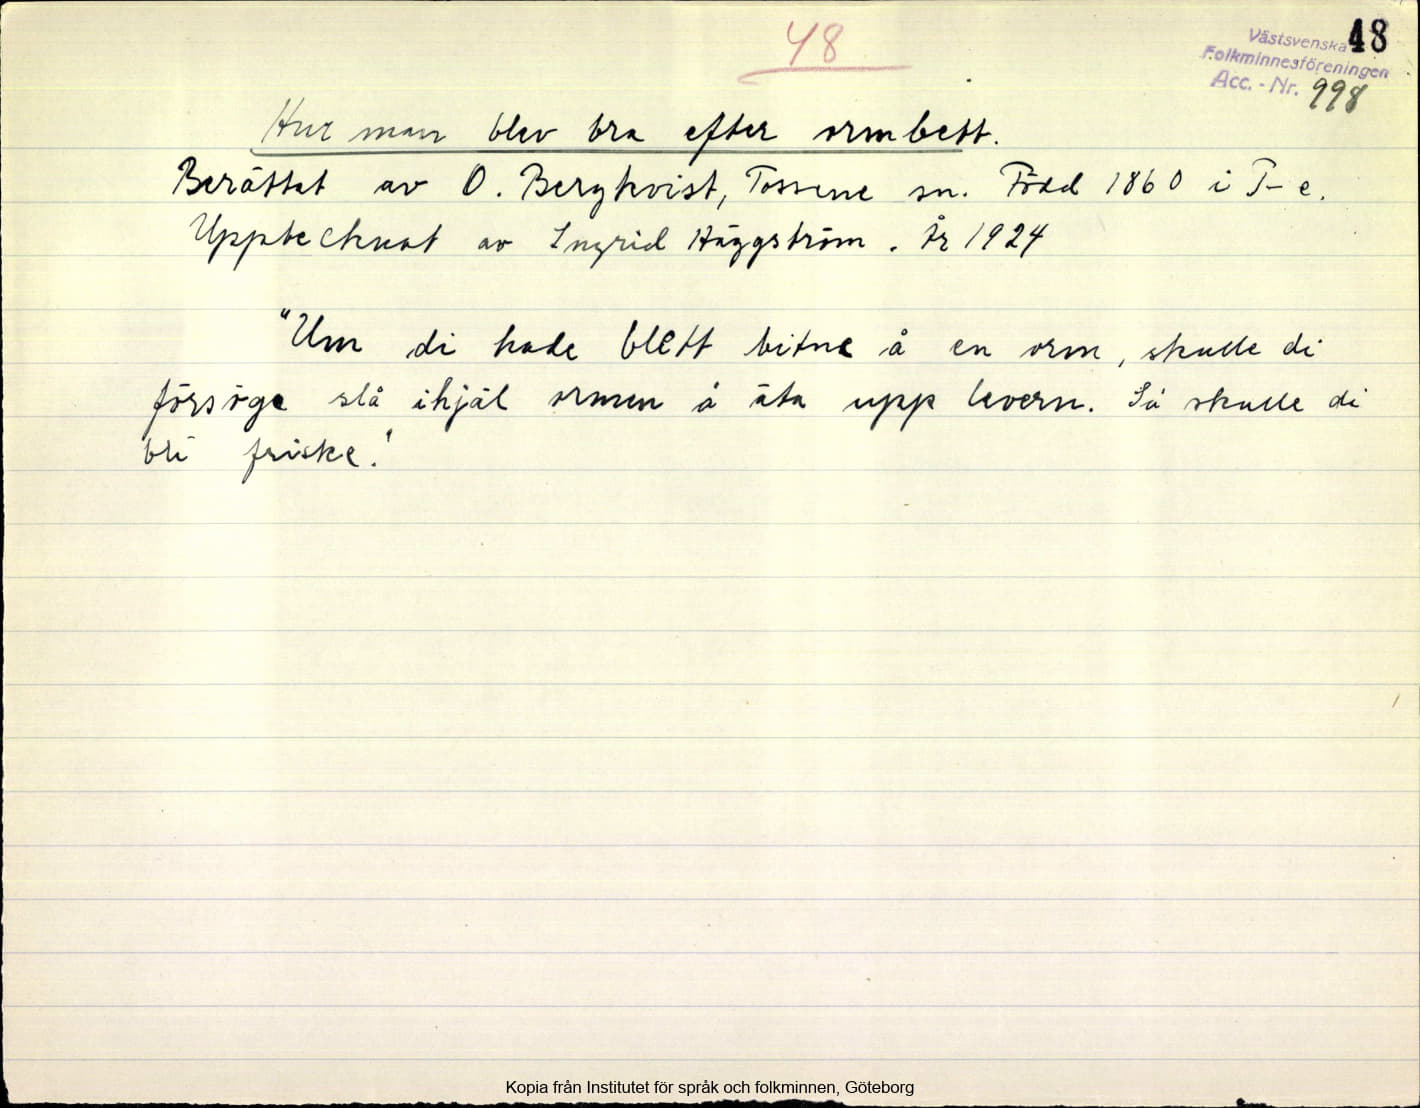 48
48
Västsvenska
Folkminnesföreningen
Acc. - Nr. 998
Hur man blev bra efter ormbett.
Berättat av O. Bergkvist, Tossene sn. Född 1860 i T-e.
Upptecknat av Ingrid Häggström. År 1924
"Um di hade blett bitne å en orm, skulle di
försöge slå ihjäl ormen å äta upp levern. Så skulle di
bli friske."
Kopia från Institutet för språk och folkminnen, Göteborg